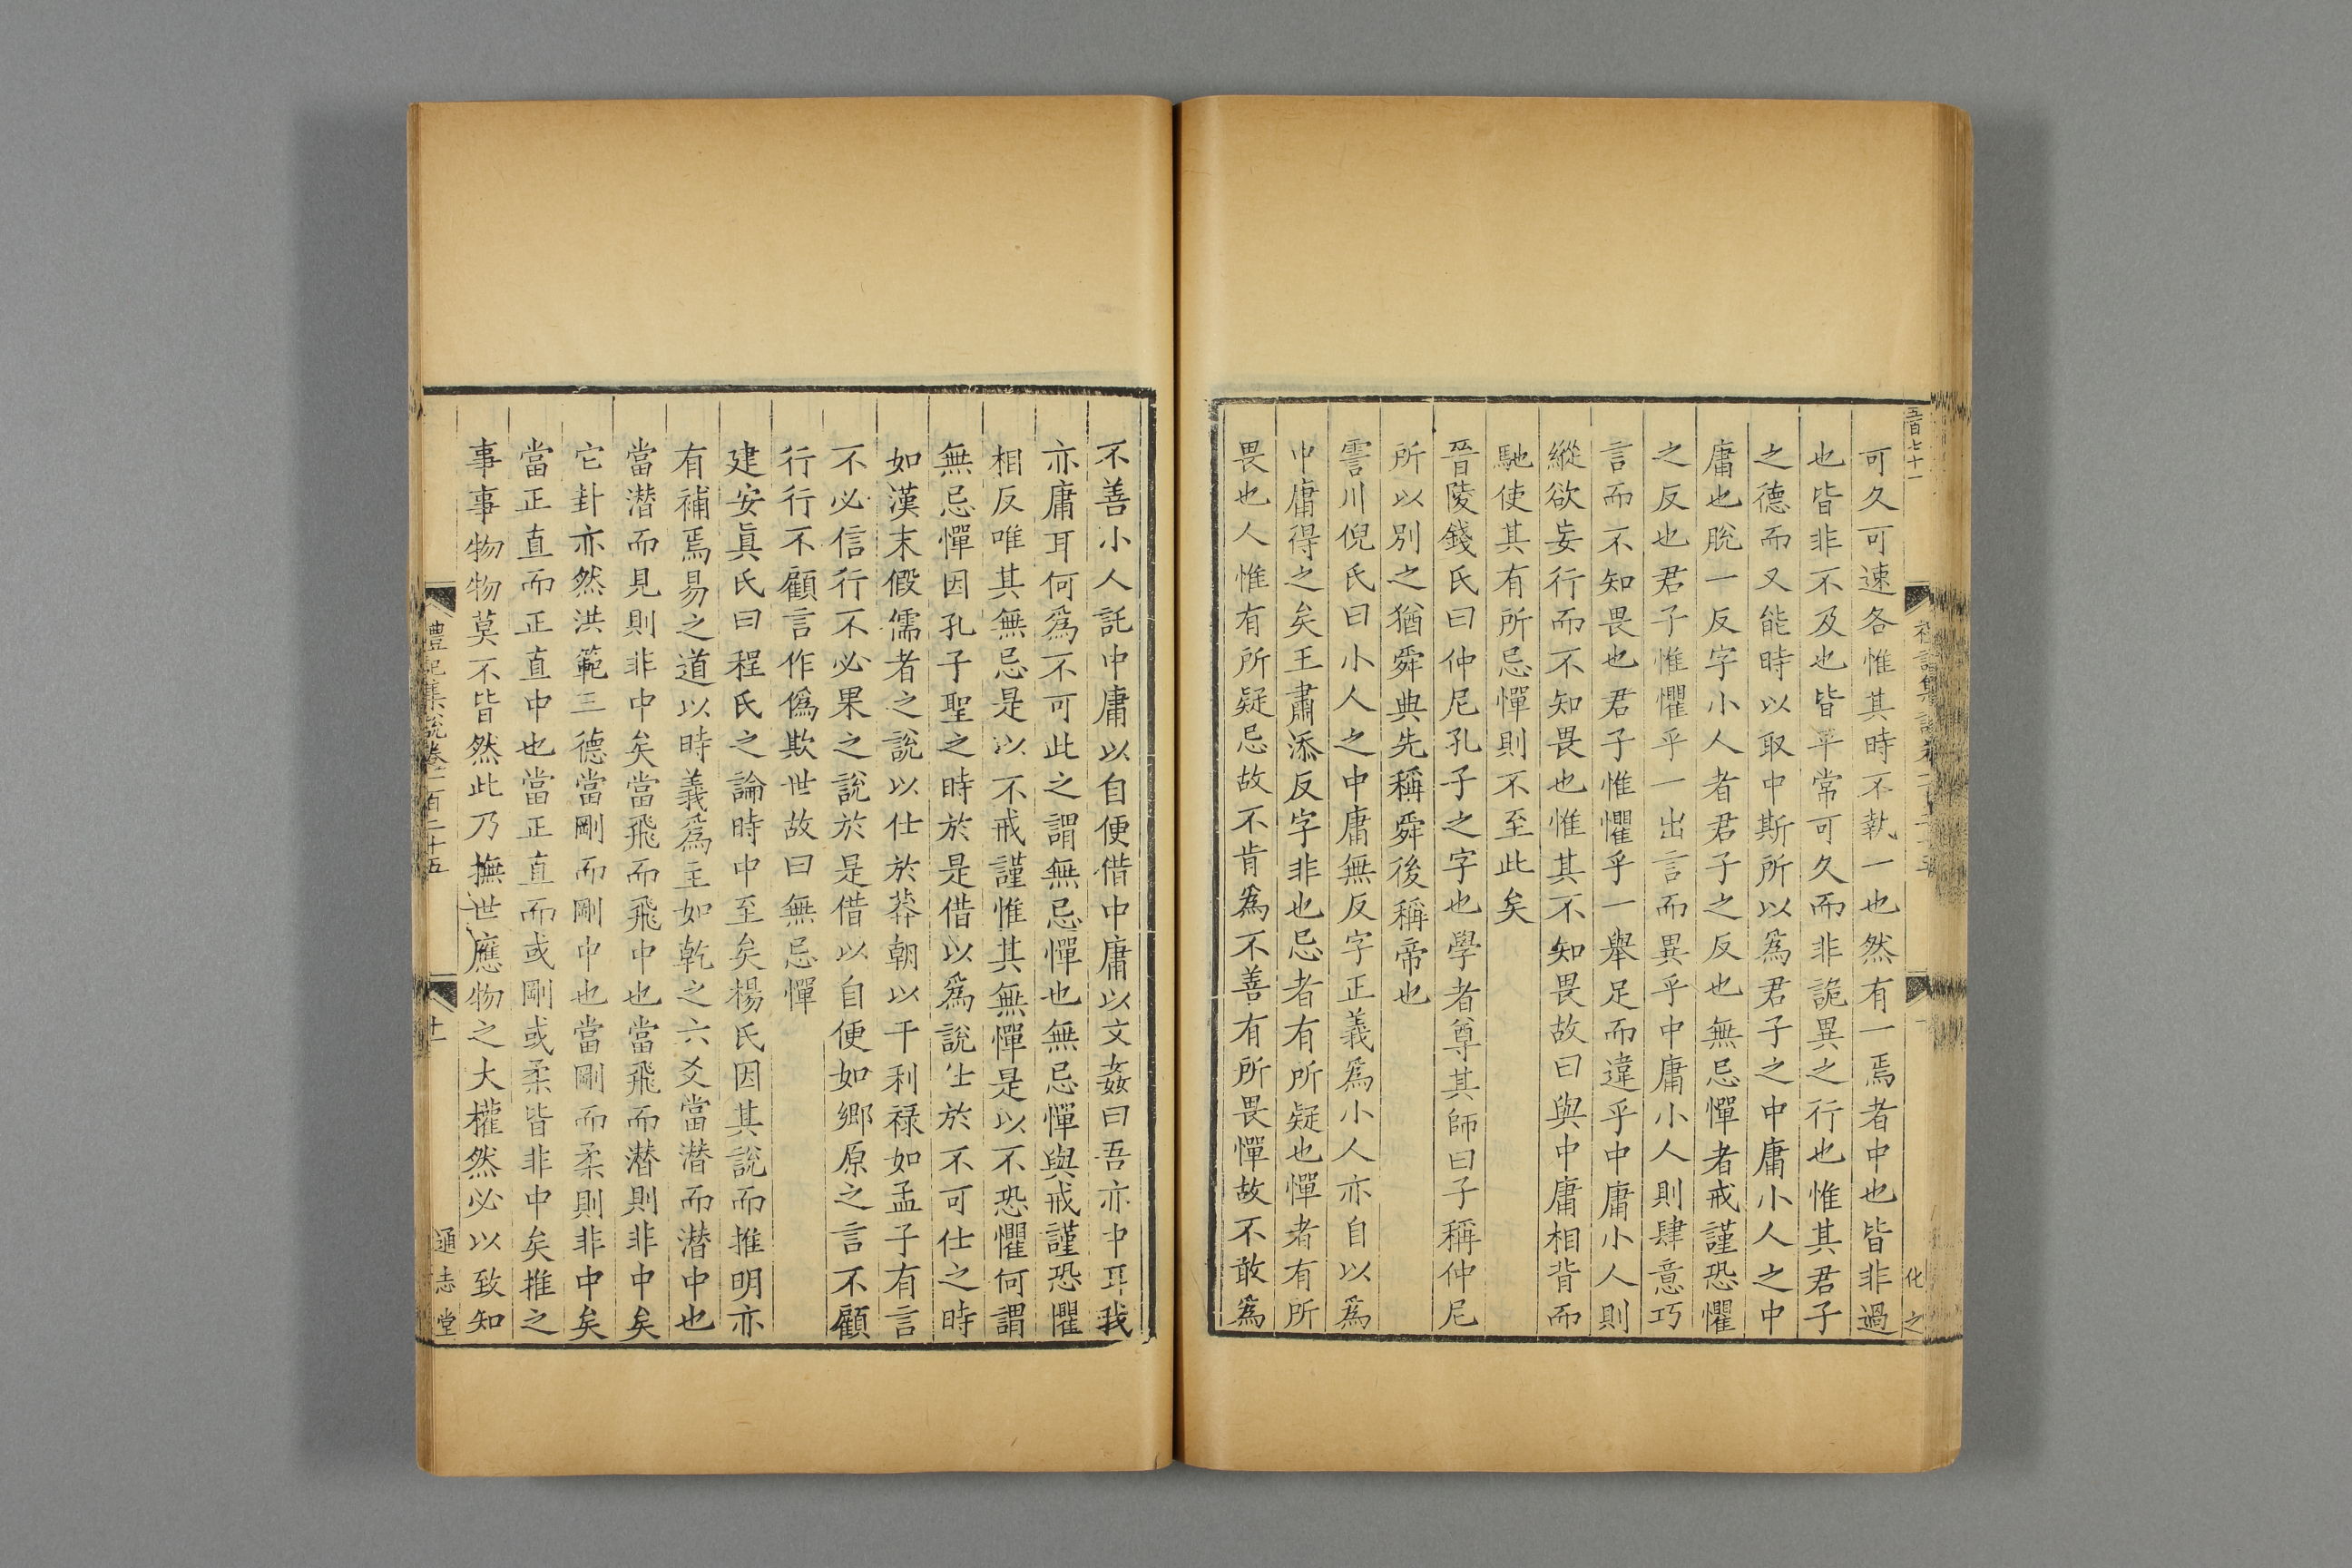 五百七十一
化之
可久可速各惟其時不執一也然有一焉者中也皆非過
也皆非不及也皆平常可久而非詭異之行也惟其君子
之德而又能時以取中斯所以為君子之中庸小人之中
庸也脫一反字小人者君子之反也無忌憚者戒謹恐懼
之反也君子惟懼乎一出言而異乎中庸小人則肆意巧
言而不知畏也君子惟懼乎一舉足而違乎中庸小人則
縱欲妄行而不知畏也惟其不知畏故曰與中庸相背而
馳使其有所忌憚則不至此矣
晉陵錢氏曰仲尼孔子之字也學者尊其師曰子稱仲尼
所以別之猶舜典先稱舜後稱帝也
霅川倪氏曰小人之中庸無反字正義爲小人亦自以爲
中庸得之矣王肅添反字非也忌者有所疑也憚者有所
畏也人惟有所疑忌故不肯爲不善有所畏憚故不敢爲
不善小人託中庸以自便借中庸以文姦曰吾亦中耳我
亦庸耳何爲不可此之謂無忌憚也無忌憚與戒謹恐懼
相反唯其無忌是以不戒謹惟其無憚是以不恐懼何謂
無忌憚因孔子聖之時於是借以爲說仕於不可仕之時
如漢末假儒者之說以仕於莽朝以干利祿如孟子有言
不必信行不必果之說於是借以自便如鄉原之言不顧
行行不顧言作僞欺世故曰無忌憚
建安眞氏曰程氏之論時中至矣楊氏因其說而推明亦
有補焉易之道以時義爲主如乾之六爻當潛而潛中也
當潛而見則非中矣當飛而飛中也當飛而潛則非中矣
它卦亦然洪範三德當剛而剛中也當剛而柔則非中矣
當正直而正直中也當正直而或剛或柔皆非中矣推之
事事物物莫不皆然此乃撫世應物之大權然必以致知
禮記集說卷一百二十五
十一
通志堂